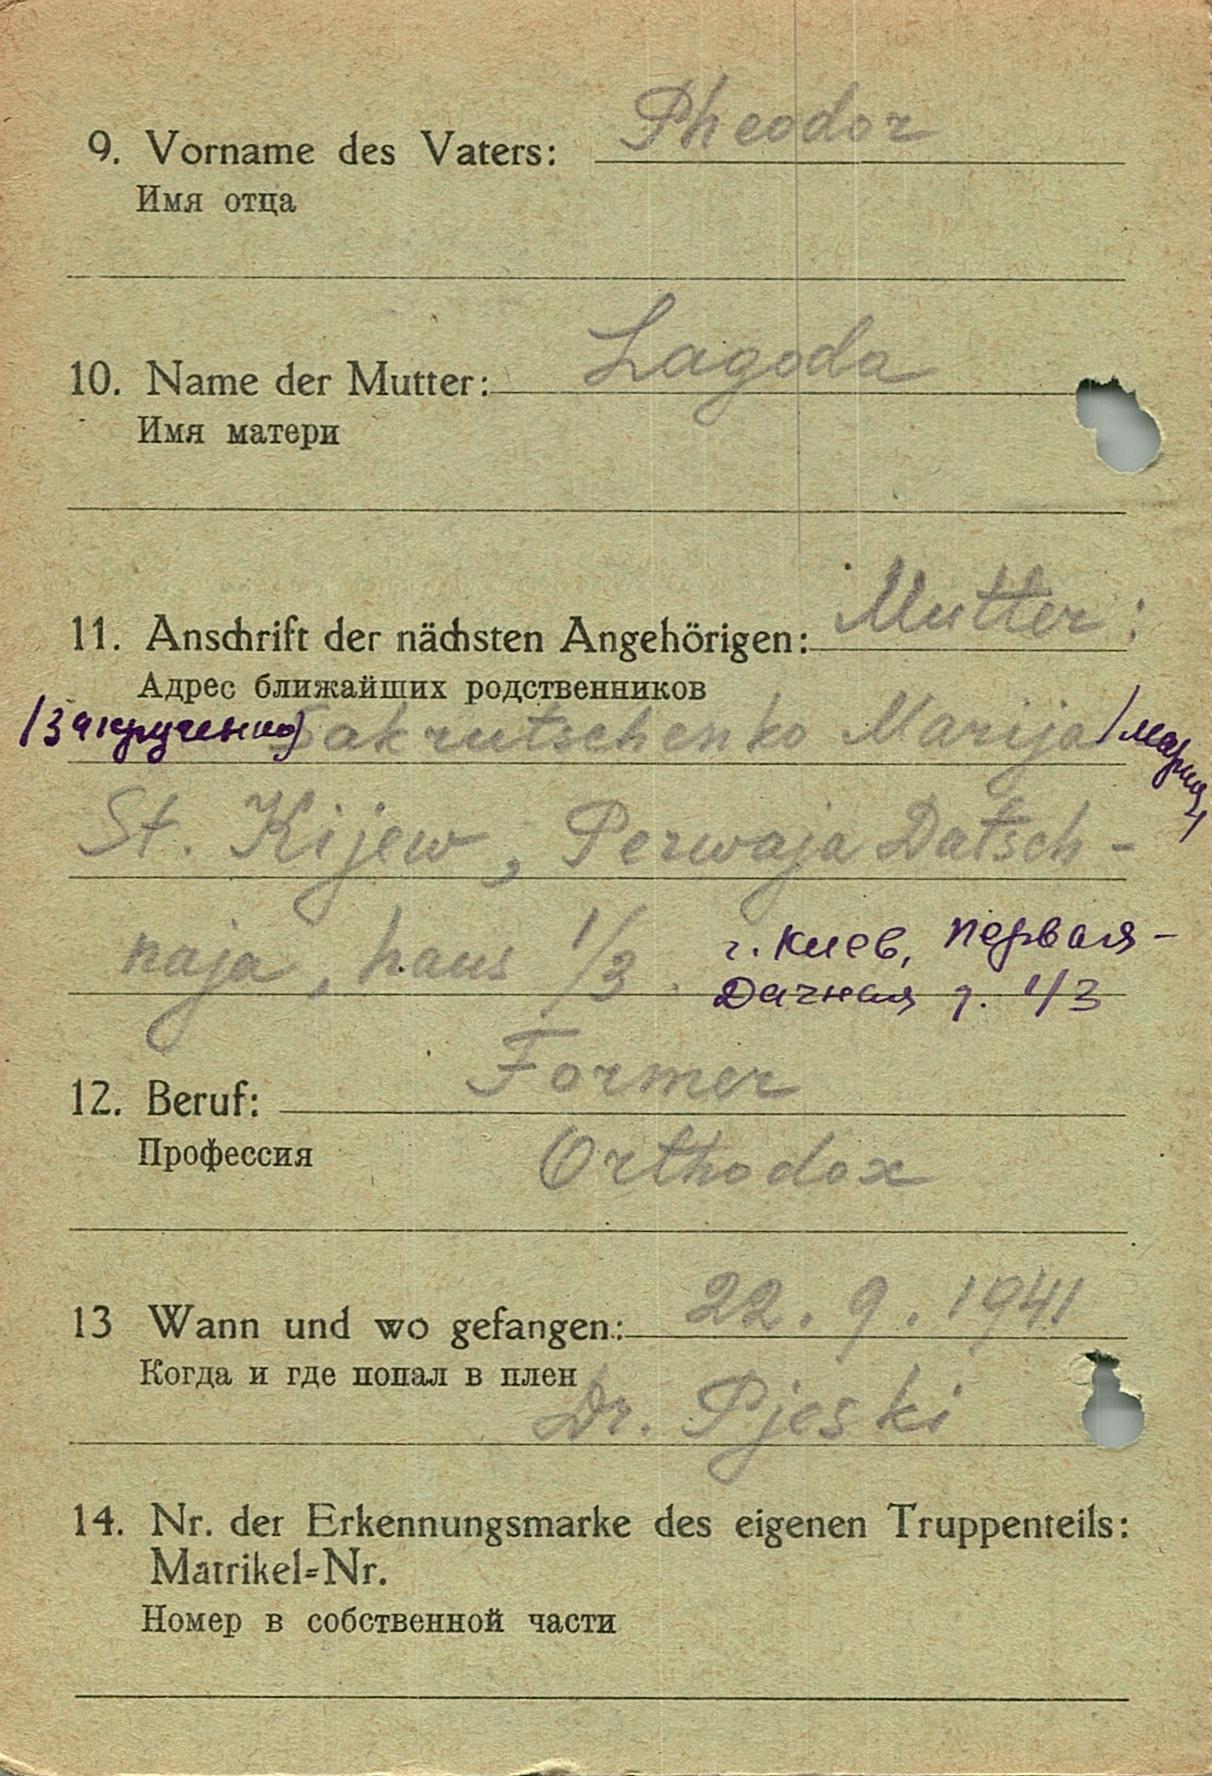 9. Vorname des Vaters: Pheodor
Имя отца
10. Name der Mutter: Lagoda
Имя матери
11. Anschrift der nächsten Angehörigen: Mutter:
Адрес ближайших родственников
(Закрученко) Sakrutschenko Marija (Мария)
St. Kijew, Perwaja Datsch-
naja, haus 1/3. г. Киев, Первая-
Дачная д. 1/3
12. Beruf: Former
Профессия
Orthodox
13 Wann und wo gefangen: 22.9.1941
Когда и где попал в плен
Dr. Pjeski
14. Nr. der Erkennungsmarke des eigenen Truppenteils:
Matrikel=Nr.
Номер в собственной части